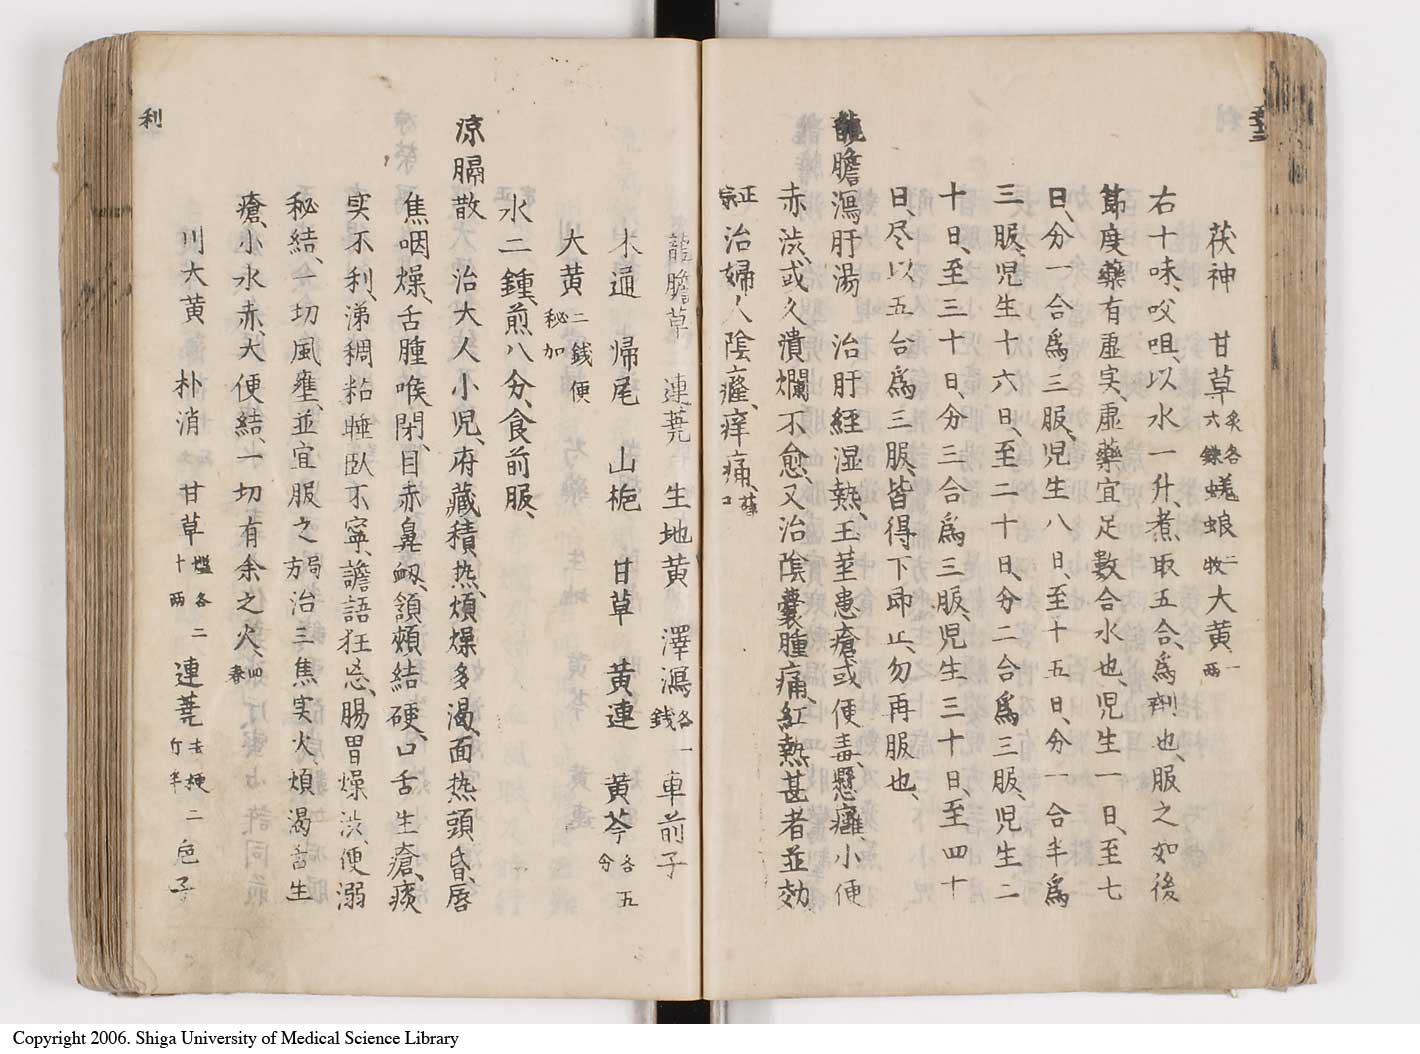 茯神　甘草 炙各六銖 蜣蜋 二枚 大黄 一両
右十味、㕮咀、以水一升、煮取五合、為剤也、服之如後
節度藥有虚实、虚藥宜足數合水也、児生一日、至七
日、分一合爲、三服、児生八日、至十五日、分一合半爲
三服、児生十六日、至二十日、分二合爲三服、児生二
十日、至三十日、分三合爲三服、児生三十日、至四十
日、尽以、五合爲三服、皆得下即止、勿再服也、
龍膽瀉肝湯　治肝経湿熱、玉莖患瘡或便毒、懸癰、小便
赤渋、或久潰爛、不愈、又治陰嚢腫痛、紅熱甚者並効
正宗 治婦人陰癰、痒痛、
龍膽草　連蕘　生地黄　澤瀉 各一銭　車前子
木通　帰尾　山梔　甘草　黄連　黄芩 各五分
大黄 二銭便秘加
水二鍾、煎八分、食前服、
涼膈散　治大人小児、府藏積、热、煩燥多渇、面热頭昏、唇
焦咽燥、舌腫喉閉、目赤鼻衂、頷頬結硬、口舌生瘡、痰
実不利、涕稠粘、睡臥不寧、譫語狂忘、腸胃燥渋、便溺
秘結、一切風壅、並宜服之 局方 治三焦実火、煩渇舌生
瘡、小水赤、大便結、一切有余之火、 回春
川大黄　朴消　甘草 爁各二十両　連蕘 去梗二斤半　巵子
利